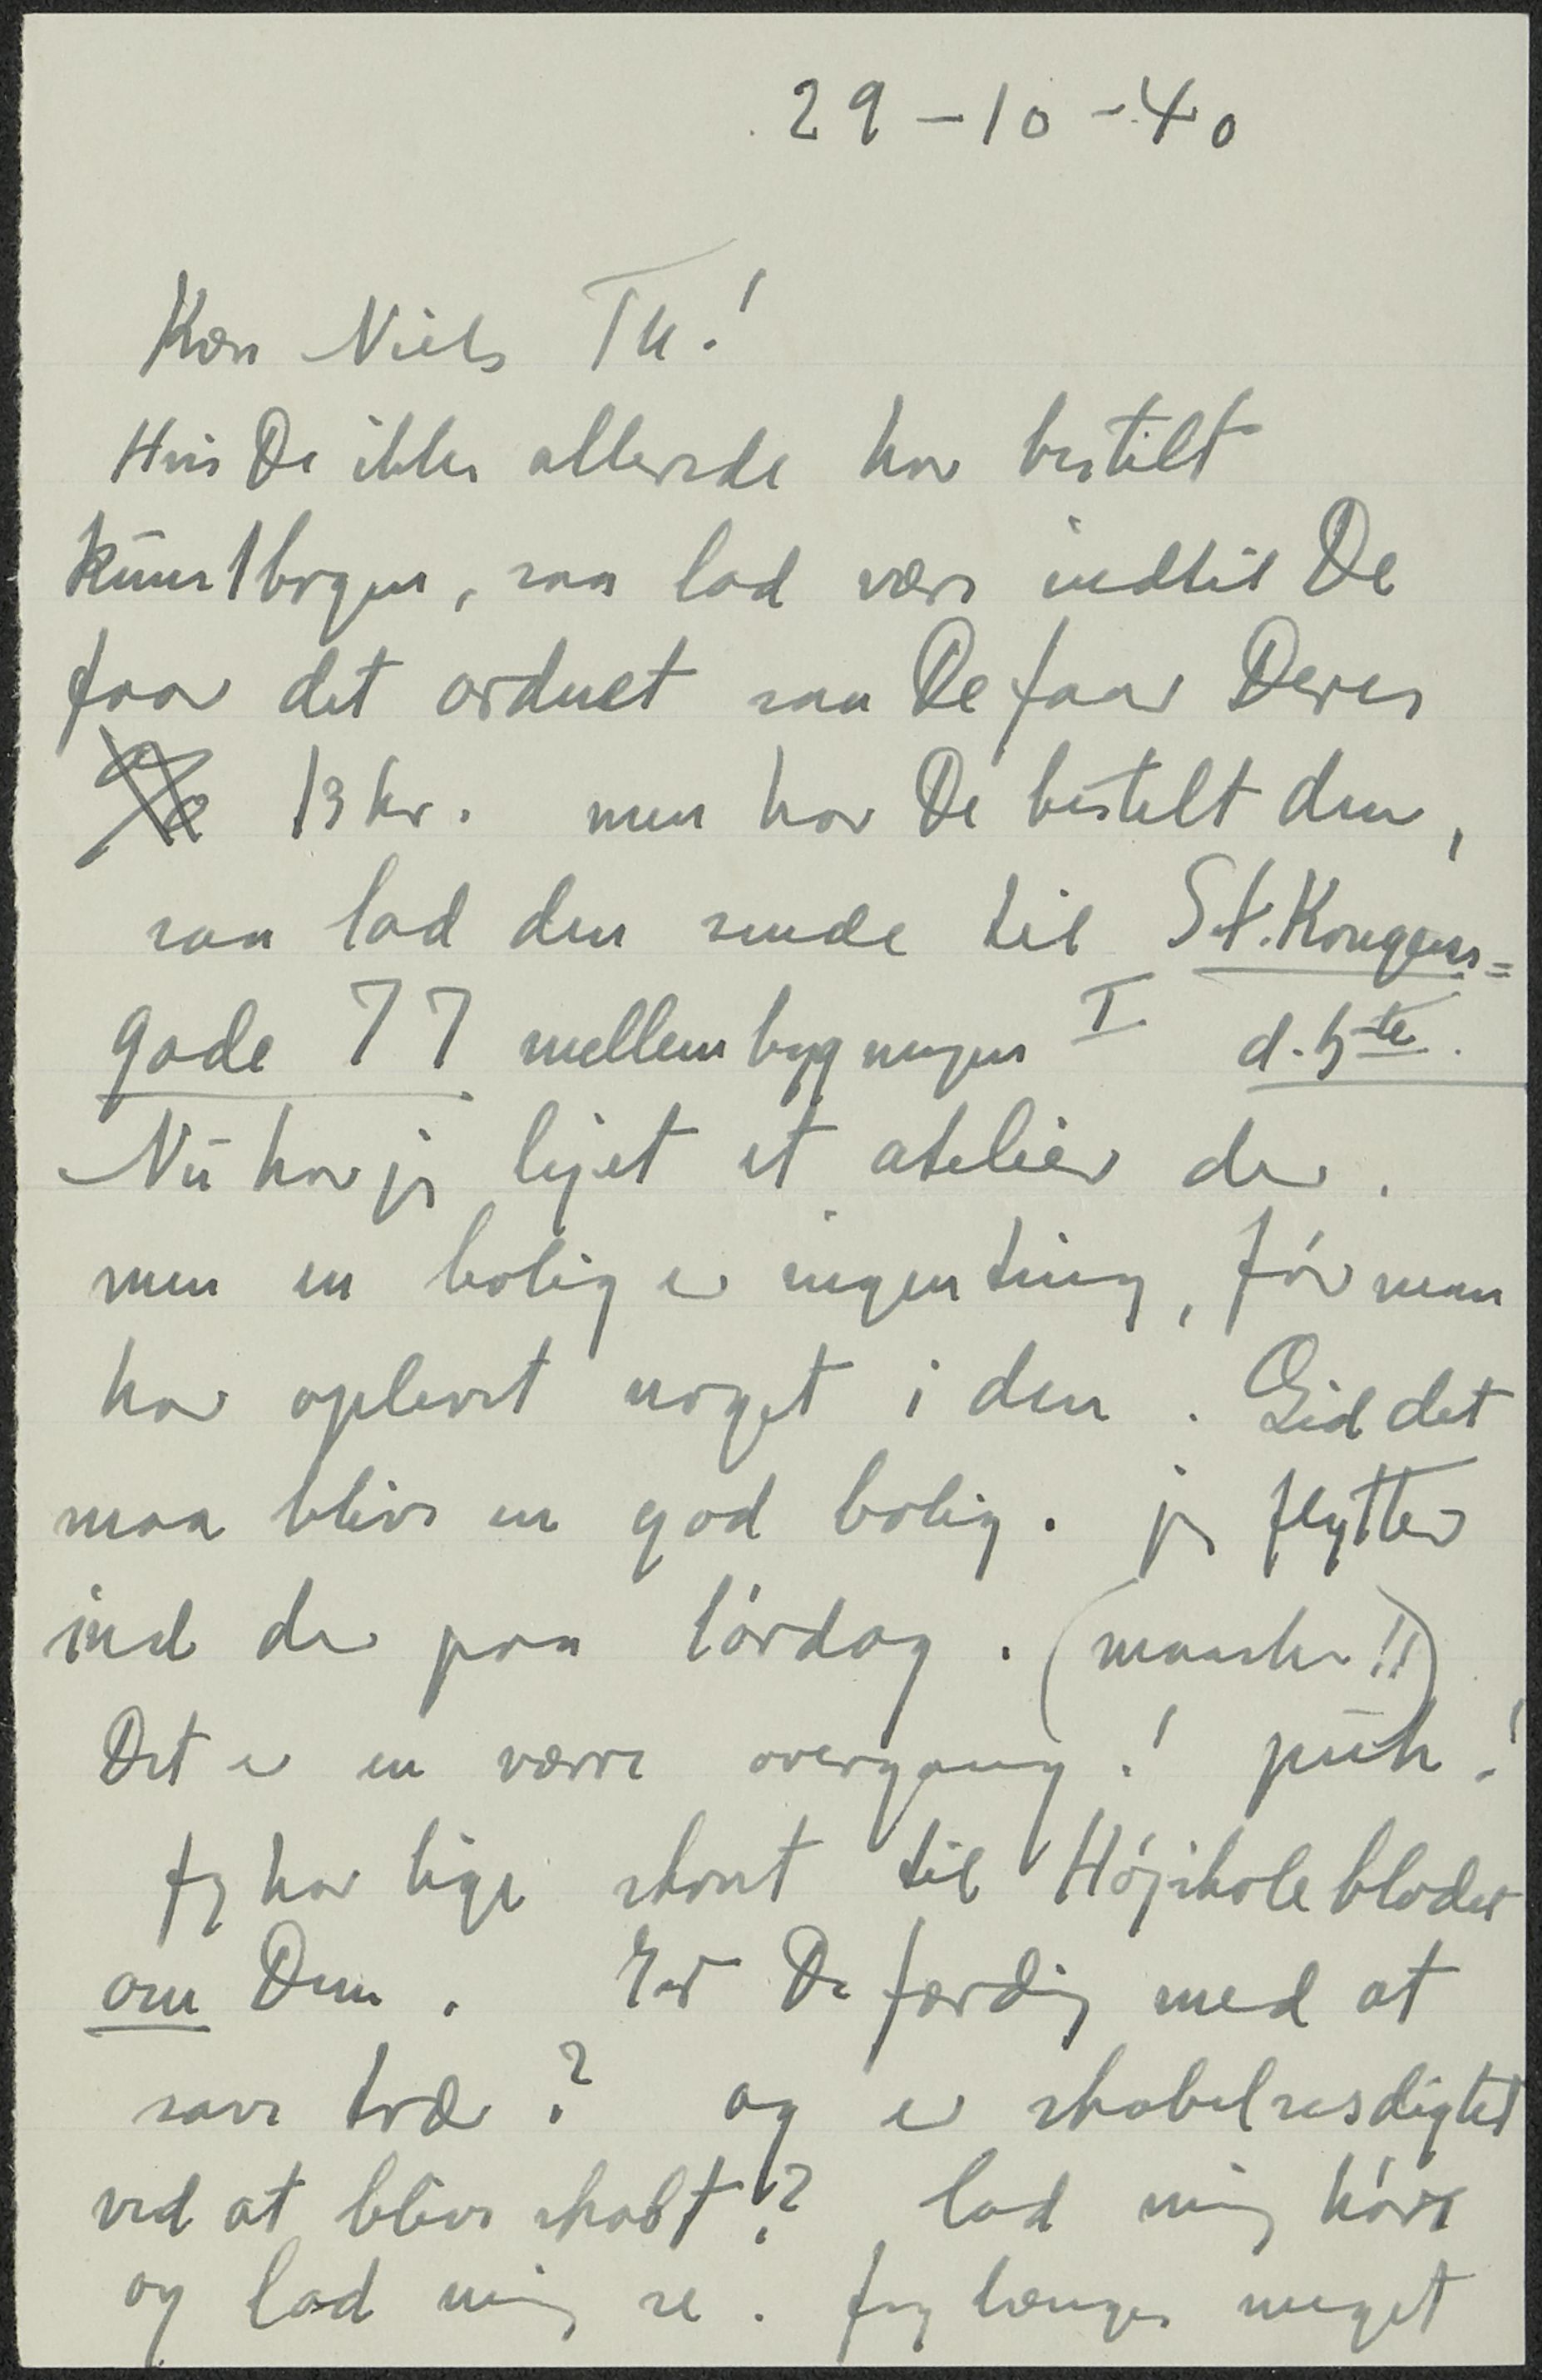 29-10-40
Kær Niels Th.!
Hvis De ikke allerede har bestilt
kunstbogen, saa lad være indtil De
faar det ordnet saa De faar Deres
13 kr. men har De bestilt den,
saa lad den sende til St. Kongens=
gade 77 mellembygningen I d. 5te.
Nu har jeg lejet et atelier der.
men en bolig er ingenting, før man
har oplevet noget i den. Gid det
maa blive en god bolig. jeg flytter
ind der paa lørdag. (maaske!!)
Det er en værre overgang! puh!
Jeg har lige skrevet til Højskolebladet
om Dem. Er De færdig med at
save træ? og er skabelsesdigtet
ved at blive skabt? lad mig høre
og lad mig se. Jeg længes meget